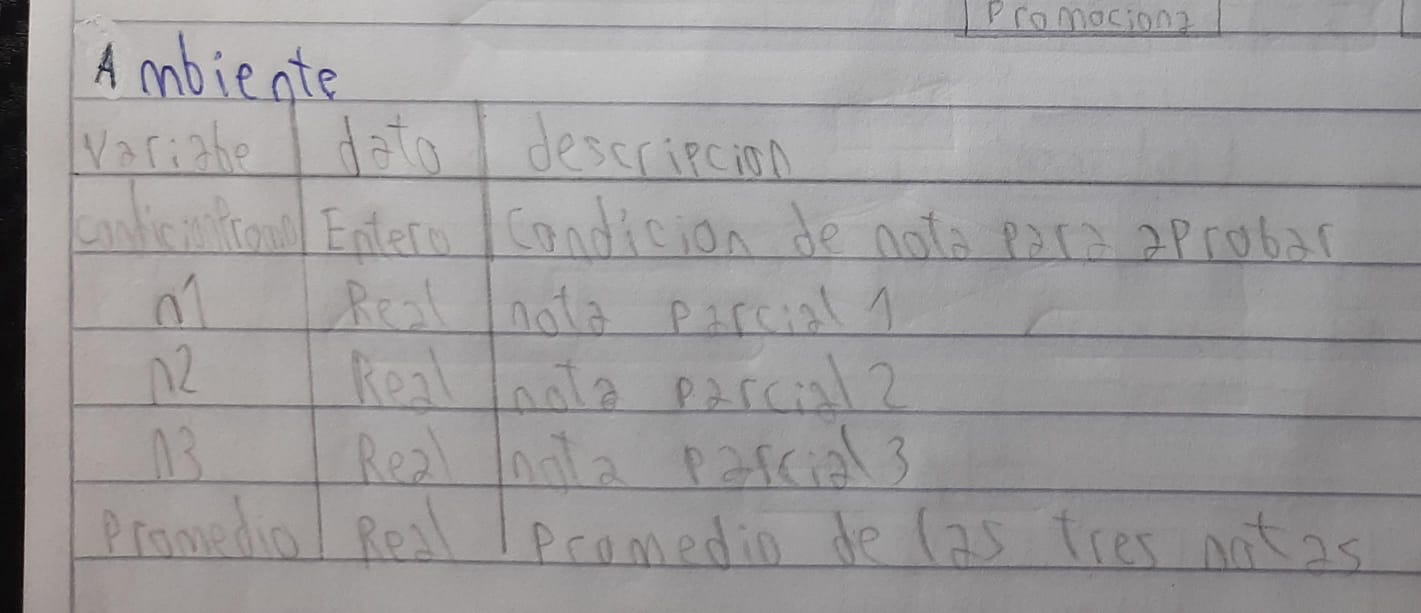 Promociona
Ambiente
Variabe dato descripcion
condicionProm Entero Condicion de nota para aprobar
n1 Real nota parcial 1
n2 Real nota parcial 2
n3 Real nota parcial 3
Promedio Real Promedio de las tres notas